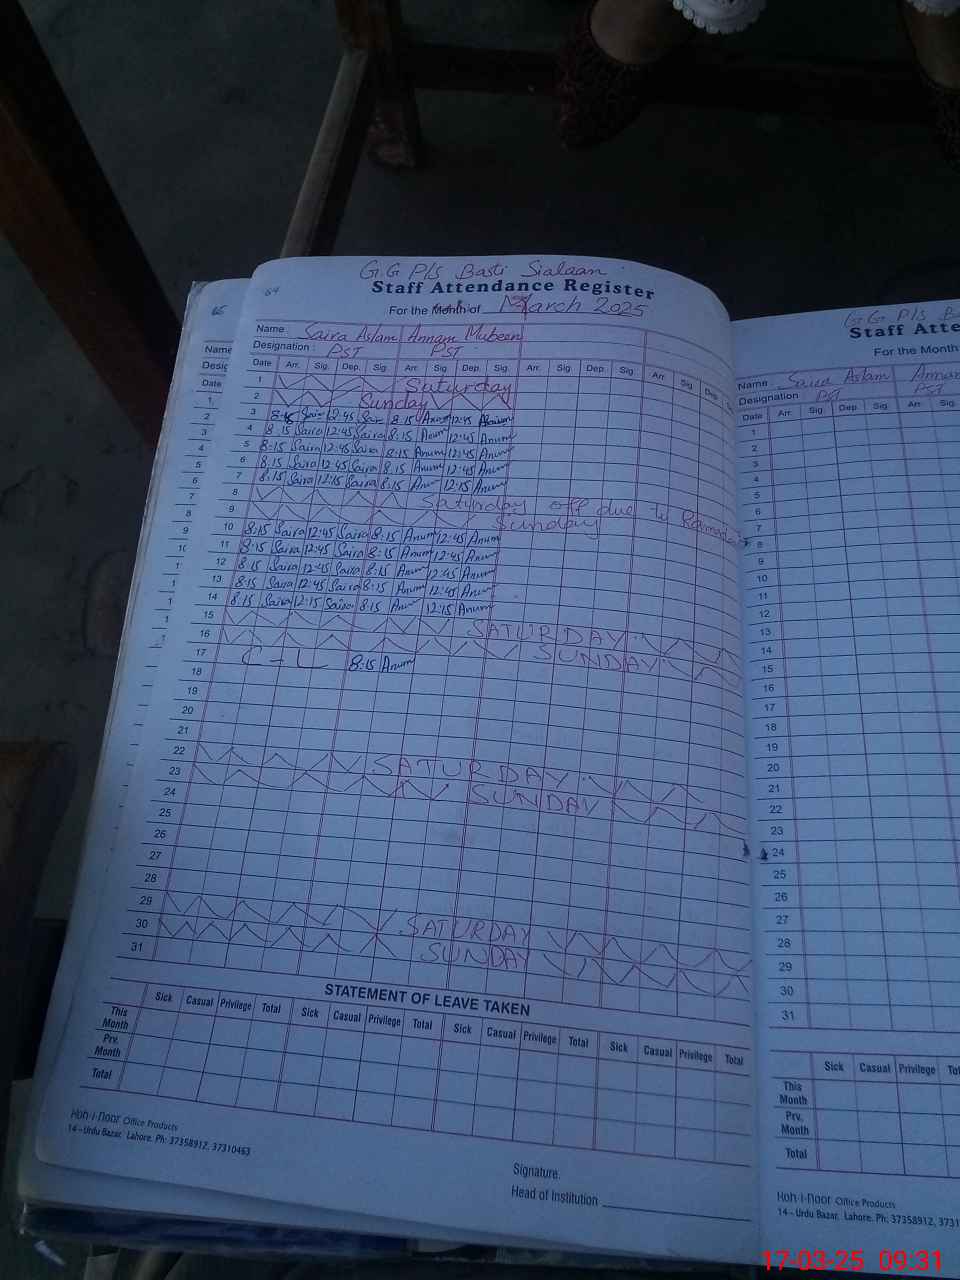 G.G P/S Basti Sialaan
64
Staff Attendance Register
For the Month of March 2025
Name : Saira Aslam Annam Mubeen
Designation : PST PST
Date Arr. Sig. Dep. Sig. Arr. Sig. Dep. Sig. Arr. Sig. Dep. Sig. Arr. Sig. Dep.
1 Saturday
2 Sunday
3 8:15 Saira 12:45 Saira 8:15 Anum 12:45
4 8:15 Saira 12:45 Saira 8:15 Anum 12:45 Anum
5 8:15 Saira 12:45 Saira 8:15 Anum 12:45 Anum
6 8:15 Saira 12:45 Saira 8:15 Anum 12:45 Anum
7 8:15 Saira 12:15 Saira 8:15 Anum 12:15 Anum
8 Saturday off due to
9 Sunday
10 8:15 Saira 12:45 Saira 8:15 Anum 12:45 Anum
11 8:15 Saira 12:45 Saira 8:15 Anum 12:45 Anum
12 8:15 Saira 12:45 Saira 8:15 Anum 12:45 Anum
13 8:15 Saira 12:45 Saira 8:15 Anum 12:45 Anum
14 8:15 Saira 12:15 Saira 8:15 Anum 12:15 Anum
15 SATURDAY
16 SUNDAY
17 C-L 8:15 Anum
18
19
20
21
22 SATURDAY
23 SUNDAY
24
25
26
27
28
29 SATURDAY
30 SUNDAY
31
STATEMENT OF LEAVE TAKEN
Sick Casual Privilege Total Sick Casual Privilege Total Sick Casual Privilege Total Sick Casual Privilege Total
This Month
Prv. Month
Total
Koh-i-noor Office Products
14 - Urdu Bazar, Lahore. Ph: 37358912, 37310463
Signature.
Head of Institution
G.G P/S
Staff Atte
For the Month
Name : Saira Aslam
Designation PST
Date Arr. Sig. Dep. Sig. Arr. Sig.
1
2
3
4
5
6
7
8
9
10
11
12
13
14
15
16
17
18
19
20
21
22
23
24
25
26
27
28
29
30
31
Sick Casual Privilege
This Month
Prv. Month
Total
Koh-i-noor Office Products
14 - Urdu Bazar, Lahore. Ph: 37358912, 3731
17-03-25 09:31